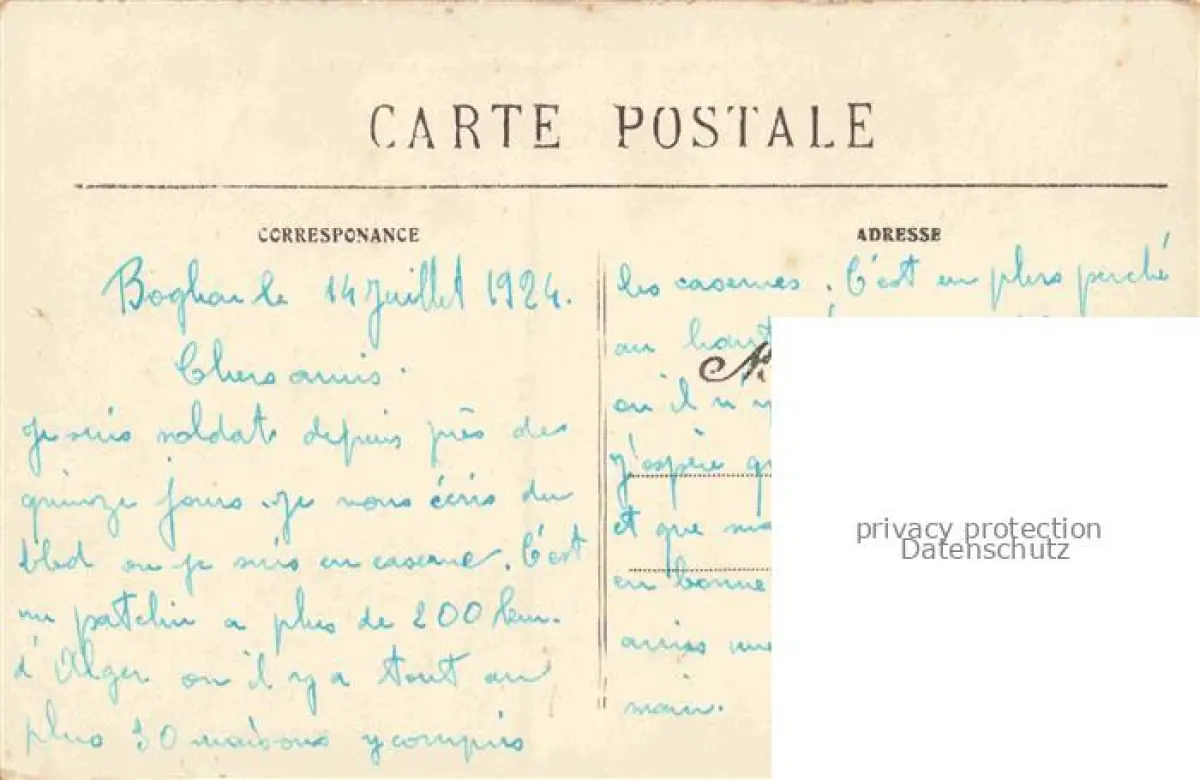 CARTE POSTALE
CORRESPONANCE
Boghar le 14 Juillet 1924.
Chers amis.
Je suis soldat depuis près de
quinze jours. Je vous écris du
bled ou je suis en caserne. C'est
un patelin a plus de 200 km.
d'Alger ou il y a tout au
plus 30 maisons y compris
ADRESSE
les casernes. C'est en plus perché
au haut
ou il n'y
J'espère
et que
en bonne
amis une
main.
privacy protection
Datenschutz